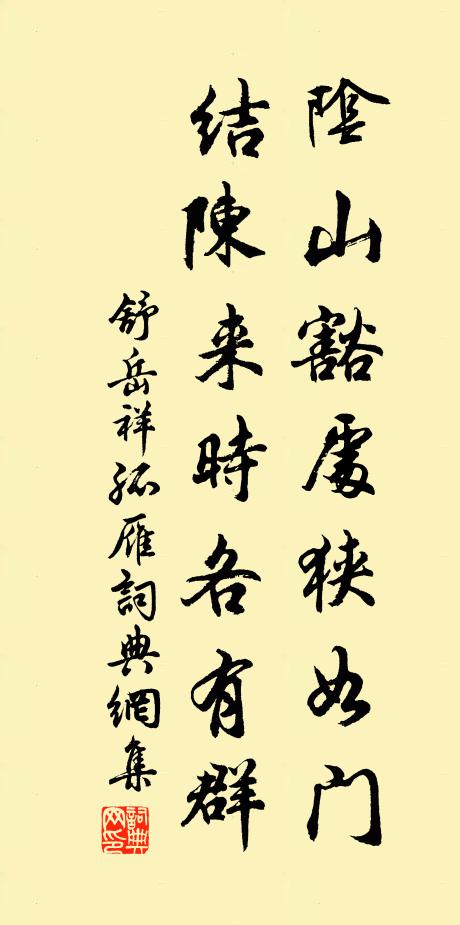 陰山豁處狹如門
結陳来時各有群
舒岳祥孤雁詞典網集
詞典网印